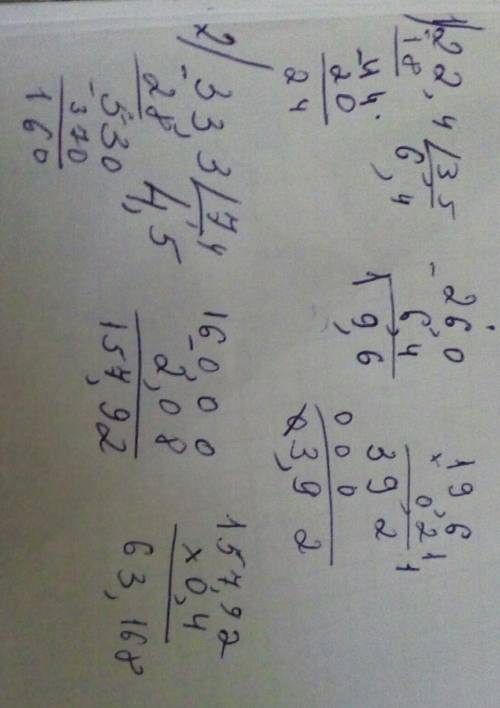 1) 22,4 | 3,5
18 6,4
-44
20
24
-260
6,4
19,6
196
x 0,21
392
000
03,92
2) -333 | 7,4
28 4,5
-530
370
160
160,00
2,08
157,92
157,92
x0,4
63,168